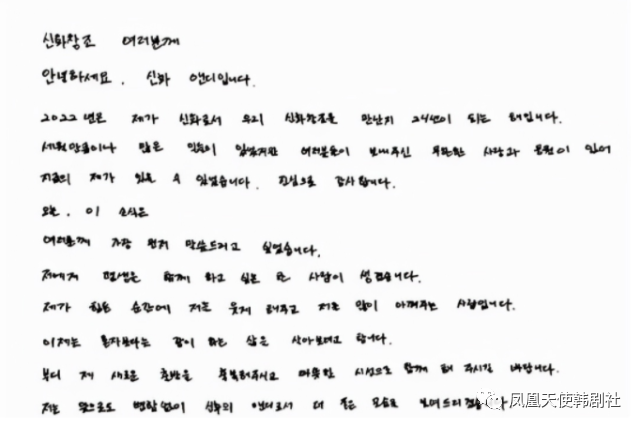 신화창조 여러분께
안녕하세요. 신화 앤디입니다.
2022년은 제가 신화로서 우리 신화창조를 만난지 24년이 되는 해입니다.
세월만큼이나 많은 일들이 있었지만 여러분들이 보내주신 무한한 사랑과 응원이 있어
지금의 제가 있을 수 있었습니다. 진심으로 감사합니다.
오늘, 이 소식은
여러분께 가장 먼저 말씀드리고 싶었습니다.
저에게 평생을 함께 하고 싶은 한 사람이 생겼습니다.
제가 힘든 순간에 저를 웃게 해주고 저를 많이 아껴주는 사람입니다.
이제는 혼자보다는 같이 하는 삶을 살아보려고 합니다.
부디 제 새로운 출발을 축복해주시고 따뜻한 시선으로 함께 해 주시길 바랍니다.
저는 앞으로도 변함없이 신화의 앤디로서 더 좋은 모습으로 보여드리겠습니다
凤凰天使韩剧社